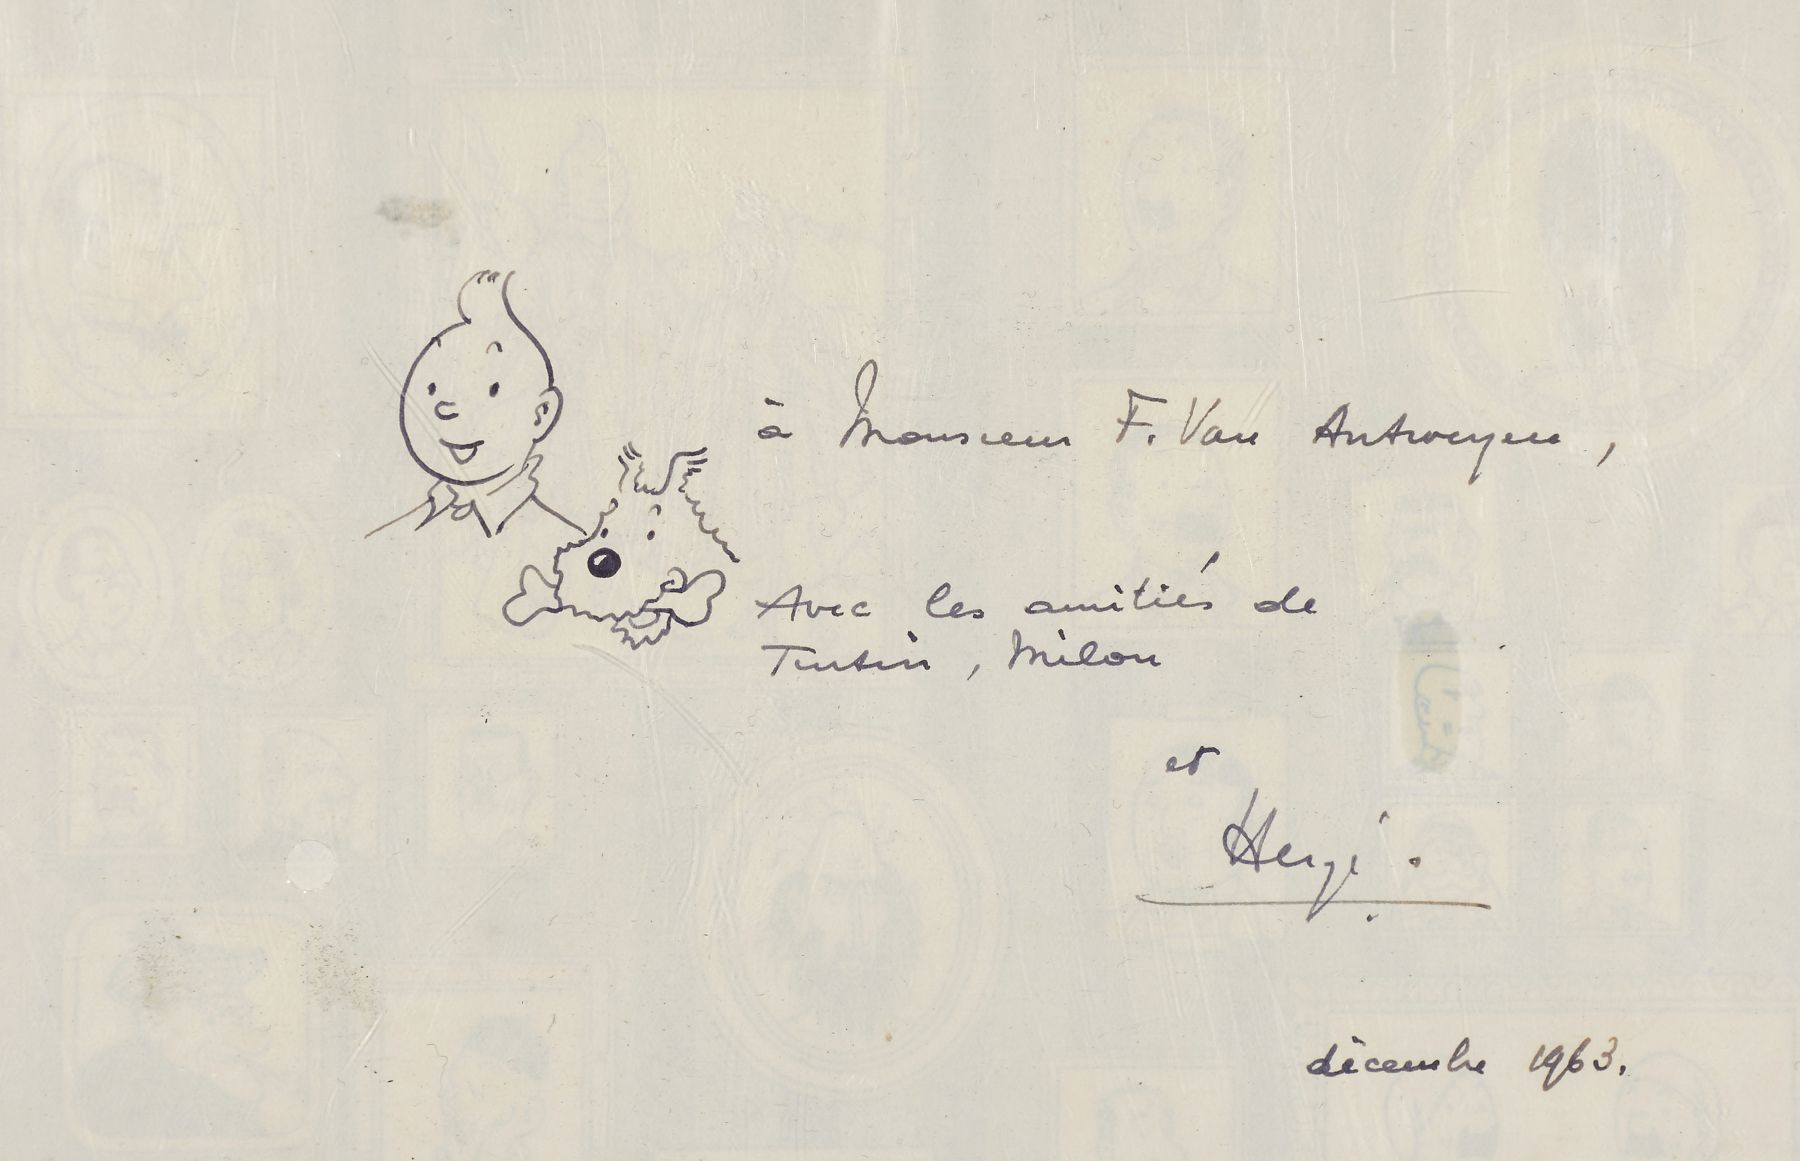 à Monsieur F. Van Antweyen,
Avec les amitiés de
Tintin, Milou
et
Hergé.
décembre 1963.